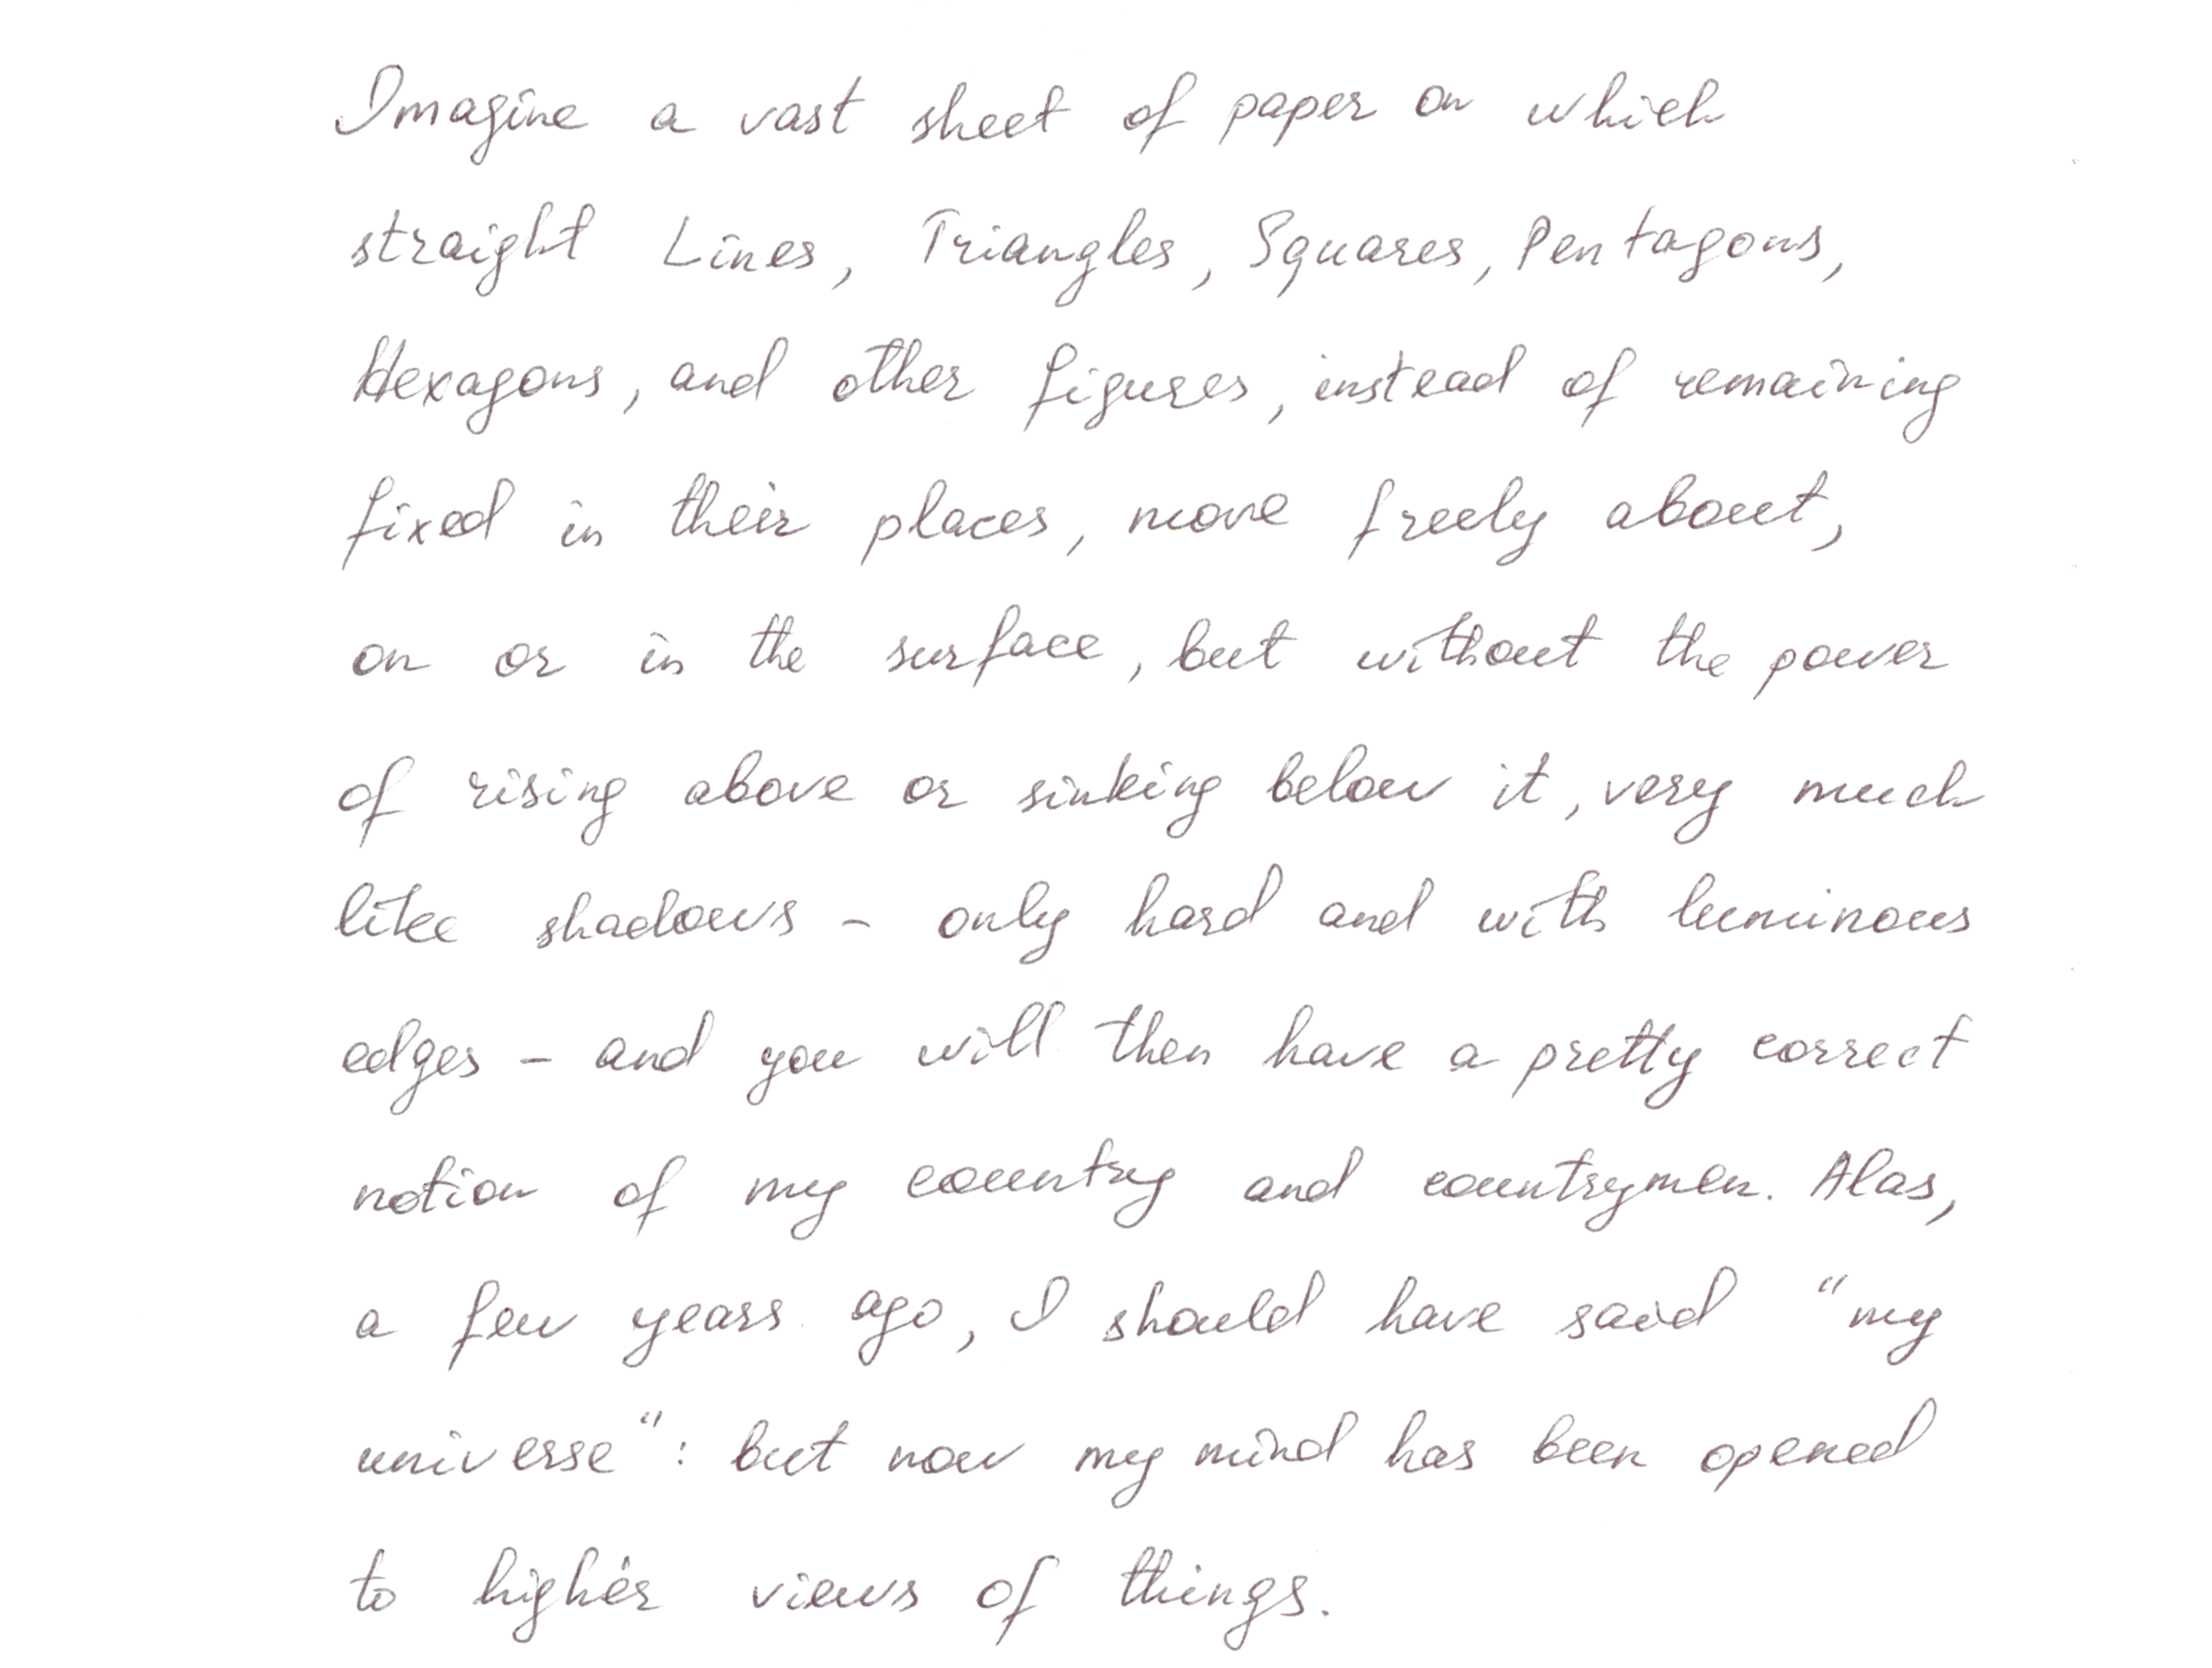 Imagine a vast sheet of paper on which
straight Lines, Triangles, Squares, Pentagons,
Hexagons, and other figures, instead of remaining
fixed in their places, move freely about,
on or in the surface, but without the power
of rising above or sinking below it, very much
like shadows - only hard and with luminous
edges - and you will then have a pretty correct
notion of my country and countrymen. Alas,
a few years ago, I should have said "my
universe": but now my mind has been opened
to higher views of things.